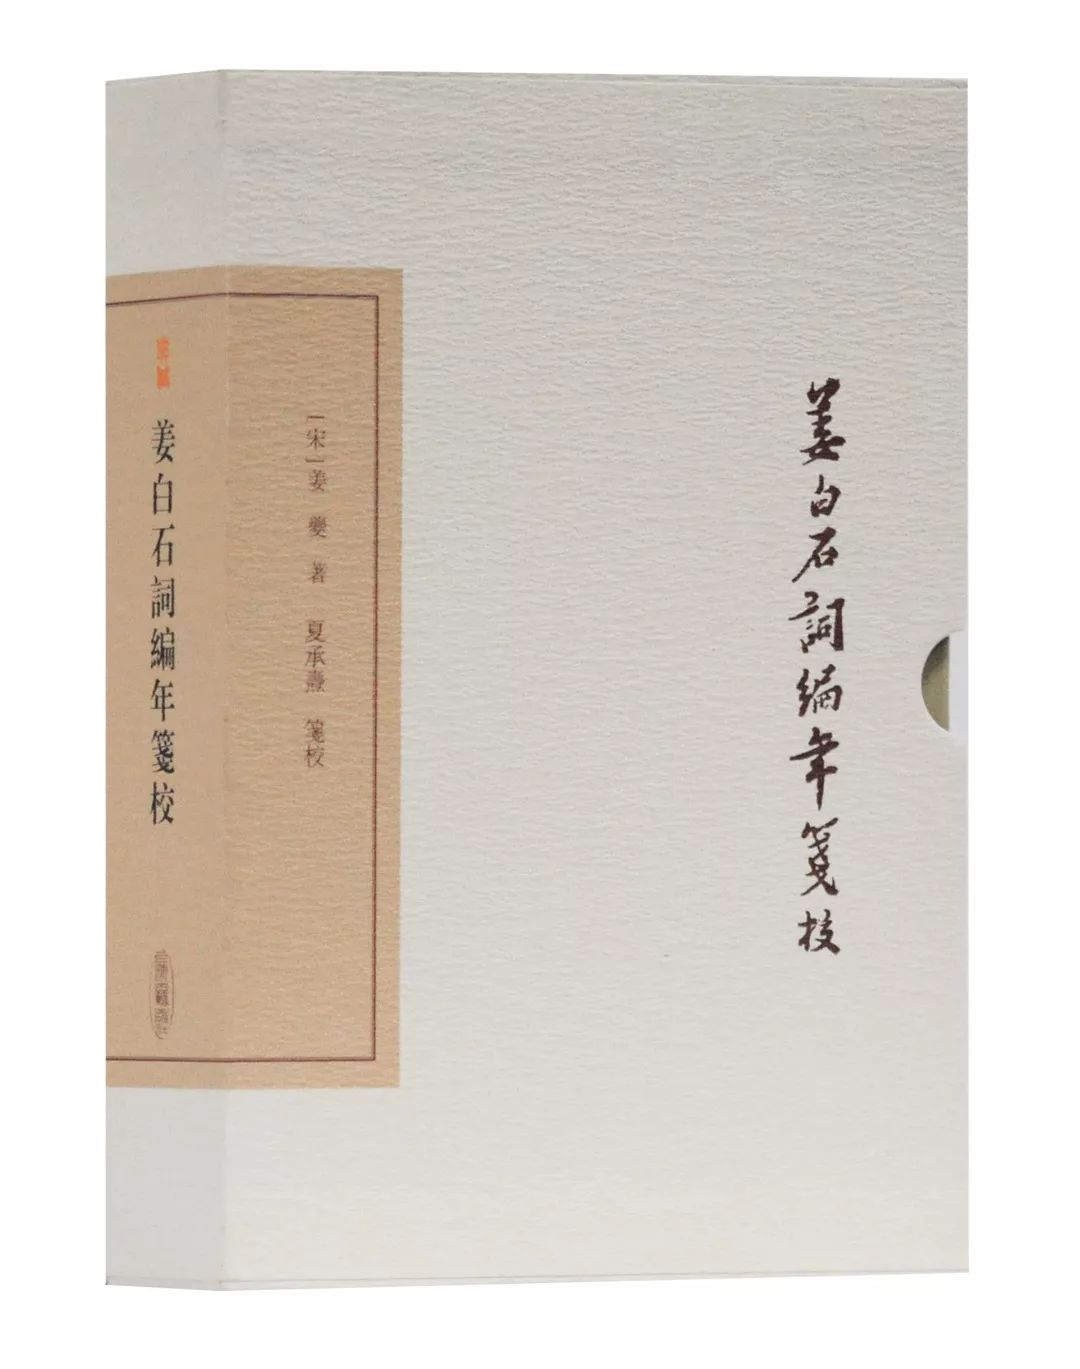 姜白石詞編年箋校
[宋]姜夔著 夏承燾 箋校
姜白石詞編年箋校